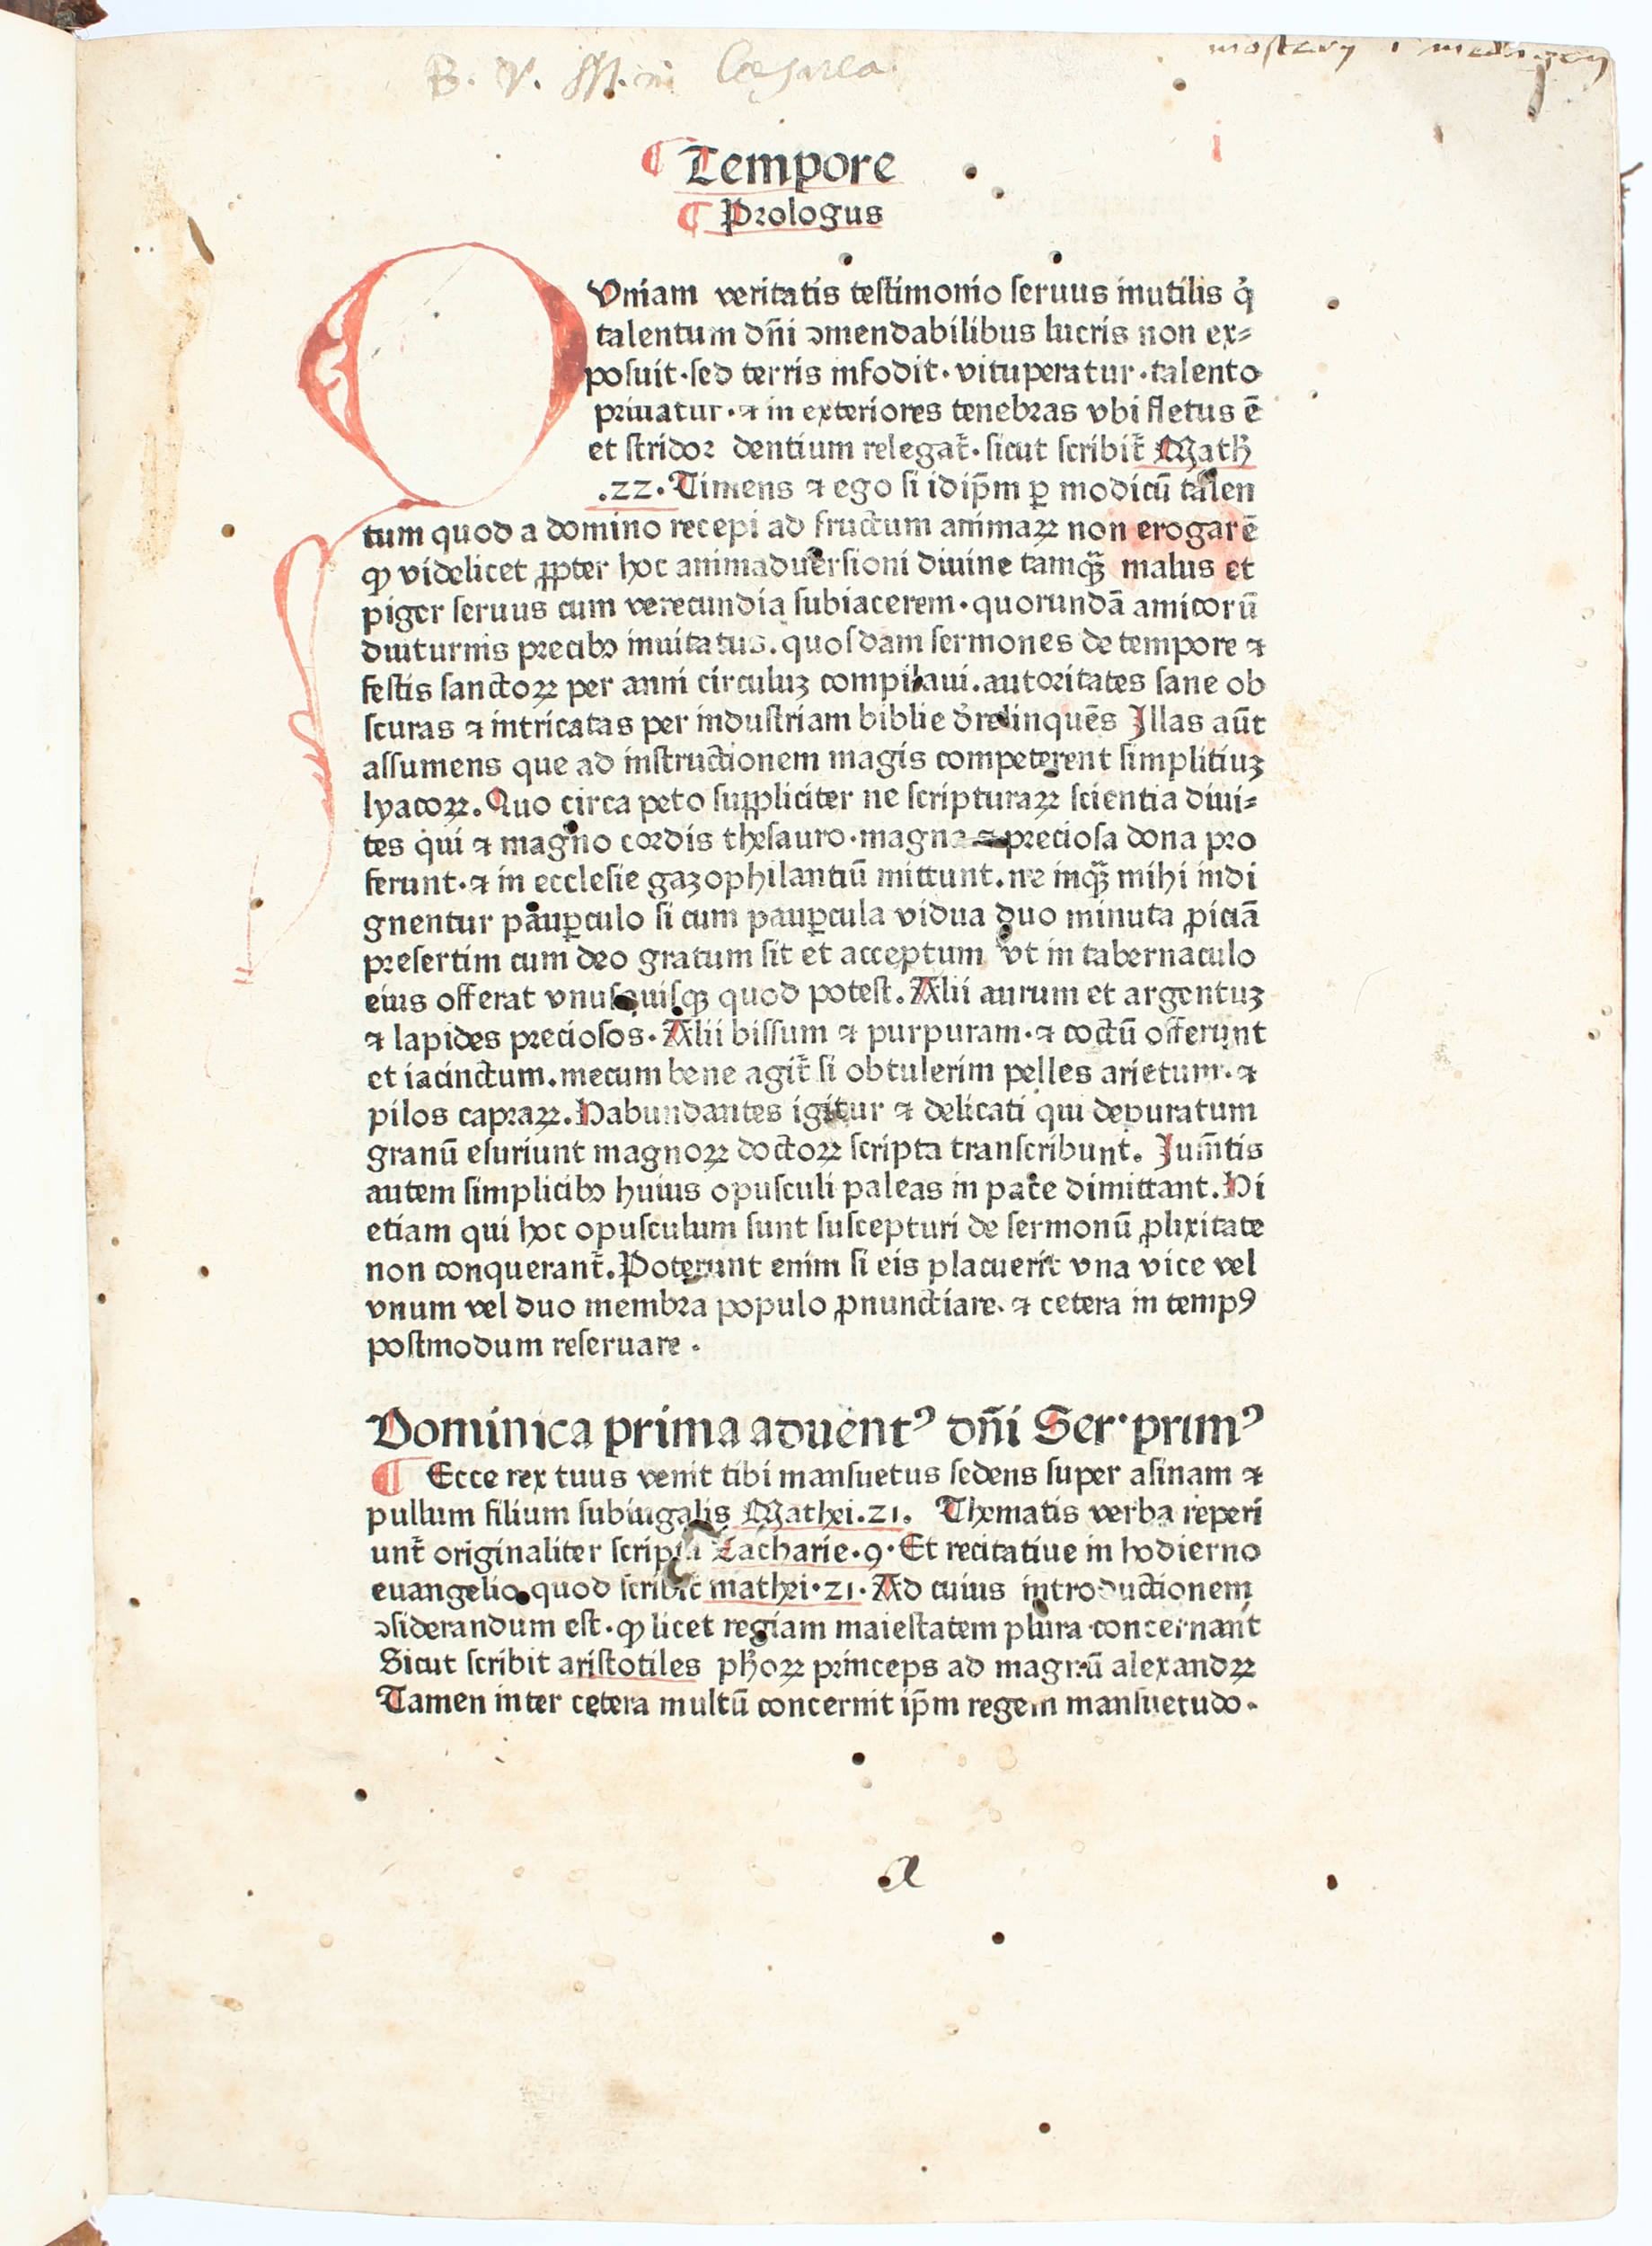 ¶ Tempore
¶ Prologus
QVniam veritatis testimonio seruus inutilis q̇
talentum dñi ɔmendabilibus lucris non ex⸗
posuit·sed terris infodit·vituperatur·talento
priuatur·⁊ in exteriores tenebras vbi fletus ē
et stridoꝛ dentium relegat̃·sicut scribit̃ Math̃
.22.Timens ⁊ ego si idip̄m ꝑ modicū talen
tum quod a domino recepi ad fructum animaꝝ non erogarē
ꝙ videlicet ꝓpter hoc animaduersioni diuine tamqȝ̃ malus et
piger seruus cum verecundia subiacerem·quorundā amicorū
diuturnis precibꝰ inuitatus.quosdam sermones de tempore ⁊
festis sanctoꝝ per anni circuluȝ compilaui.autoritates sane ob
scuras ⁊ intricatas per industriam biblie d̓relinquēs Illas aūt
assumens que ad instructionem magis competerent simplitiuȝ
lyacoꝝ.Quo circa peto suppliciter ne scripturaꝝ scientia diui⸗
tes qui ⁊ magno cordis thesauro·magna ⁊ preciosa dona pro
ferunt·⁊ in ecclesie gazophilantiū mittunt.ne inqȝ̃ mihi indi
gnentur pauꝑculo si cum pauꝑcula vidua duo minuta ꝓiciā
presertim cum deo gratum sit et acceptum vt in tabernaculo
eius offerat vnusquisqȝ quod potest.Alii aurum et argentuȝ
⁊ lapides preciosos·Alii bissum ⁊ purpuram·⁊ coctū offerunt
et iacinctum.mecum bene agit̃ si obtulerim pelles arietum·⁊
pilos capraꝝ.Habundantes igitur ⁊ delicati qui depuratum
granū esuriunt magnoꝝ doctoꝝ scripta transcribunt. Jum̄tis
autem simplicibꝰ huius opusculi paleas in pace dimittant.Hi
etiam qui hoc opusculum sunt suscepturi de sermonū ꝓlixitate
non conquerant̃.Poterunt enim si eis placuerit vna vice vel
vnum vel duo membra populo ꝓnunctiare·⁊ cetera in tempꝰ
postmodum reseruare·
Dominica prima aduentꝰ dñi Ser·primꝰ
¶ Ecce rex tuus venit tibi mansuetus sedens super asinam ⁊
pullum filium subiugalis Mathei.21. Thematis verba reperi
unt̃ originaliter scripta Zacharie·9·Et recitatiue in hodierno
euangelio quod scribit̃ mathei·21·Ad cuius introductionem
ɔsiderandum est·ꝙ licet regiam maiestatem plura concernant
Sicut scribit aristotiles pħoꝝ princeps ad magnū alexandꝝ
Tamen inter cetera multū concernit ip̄m regem mansuetudo·
a